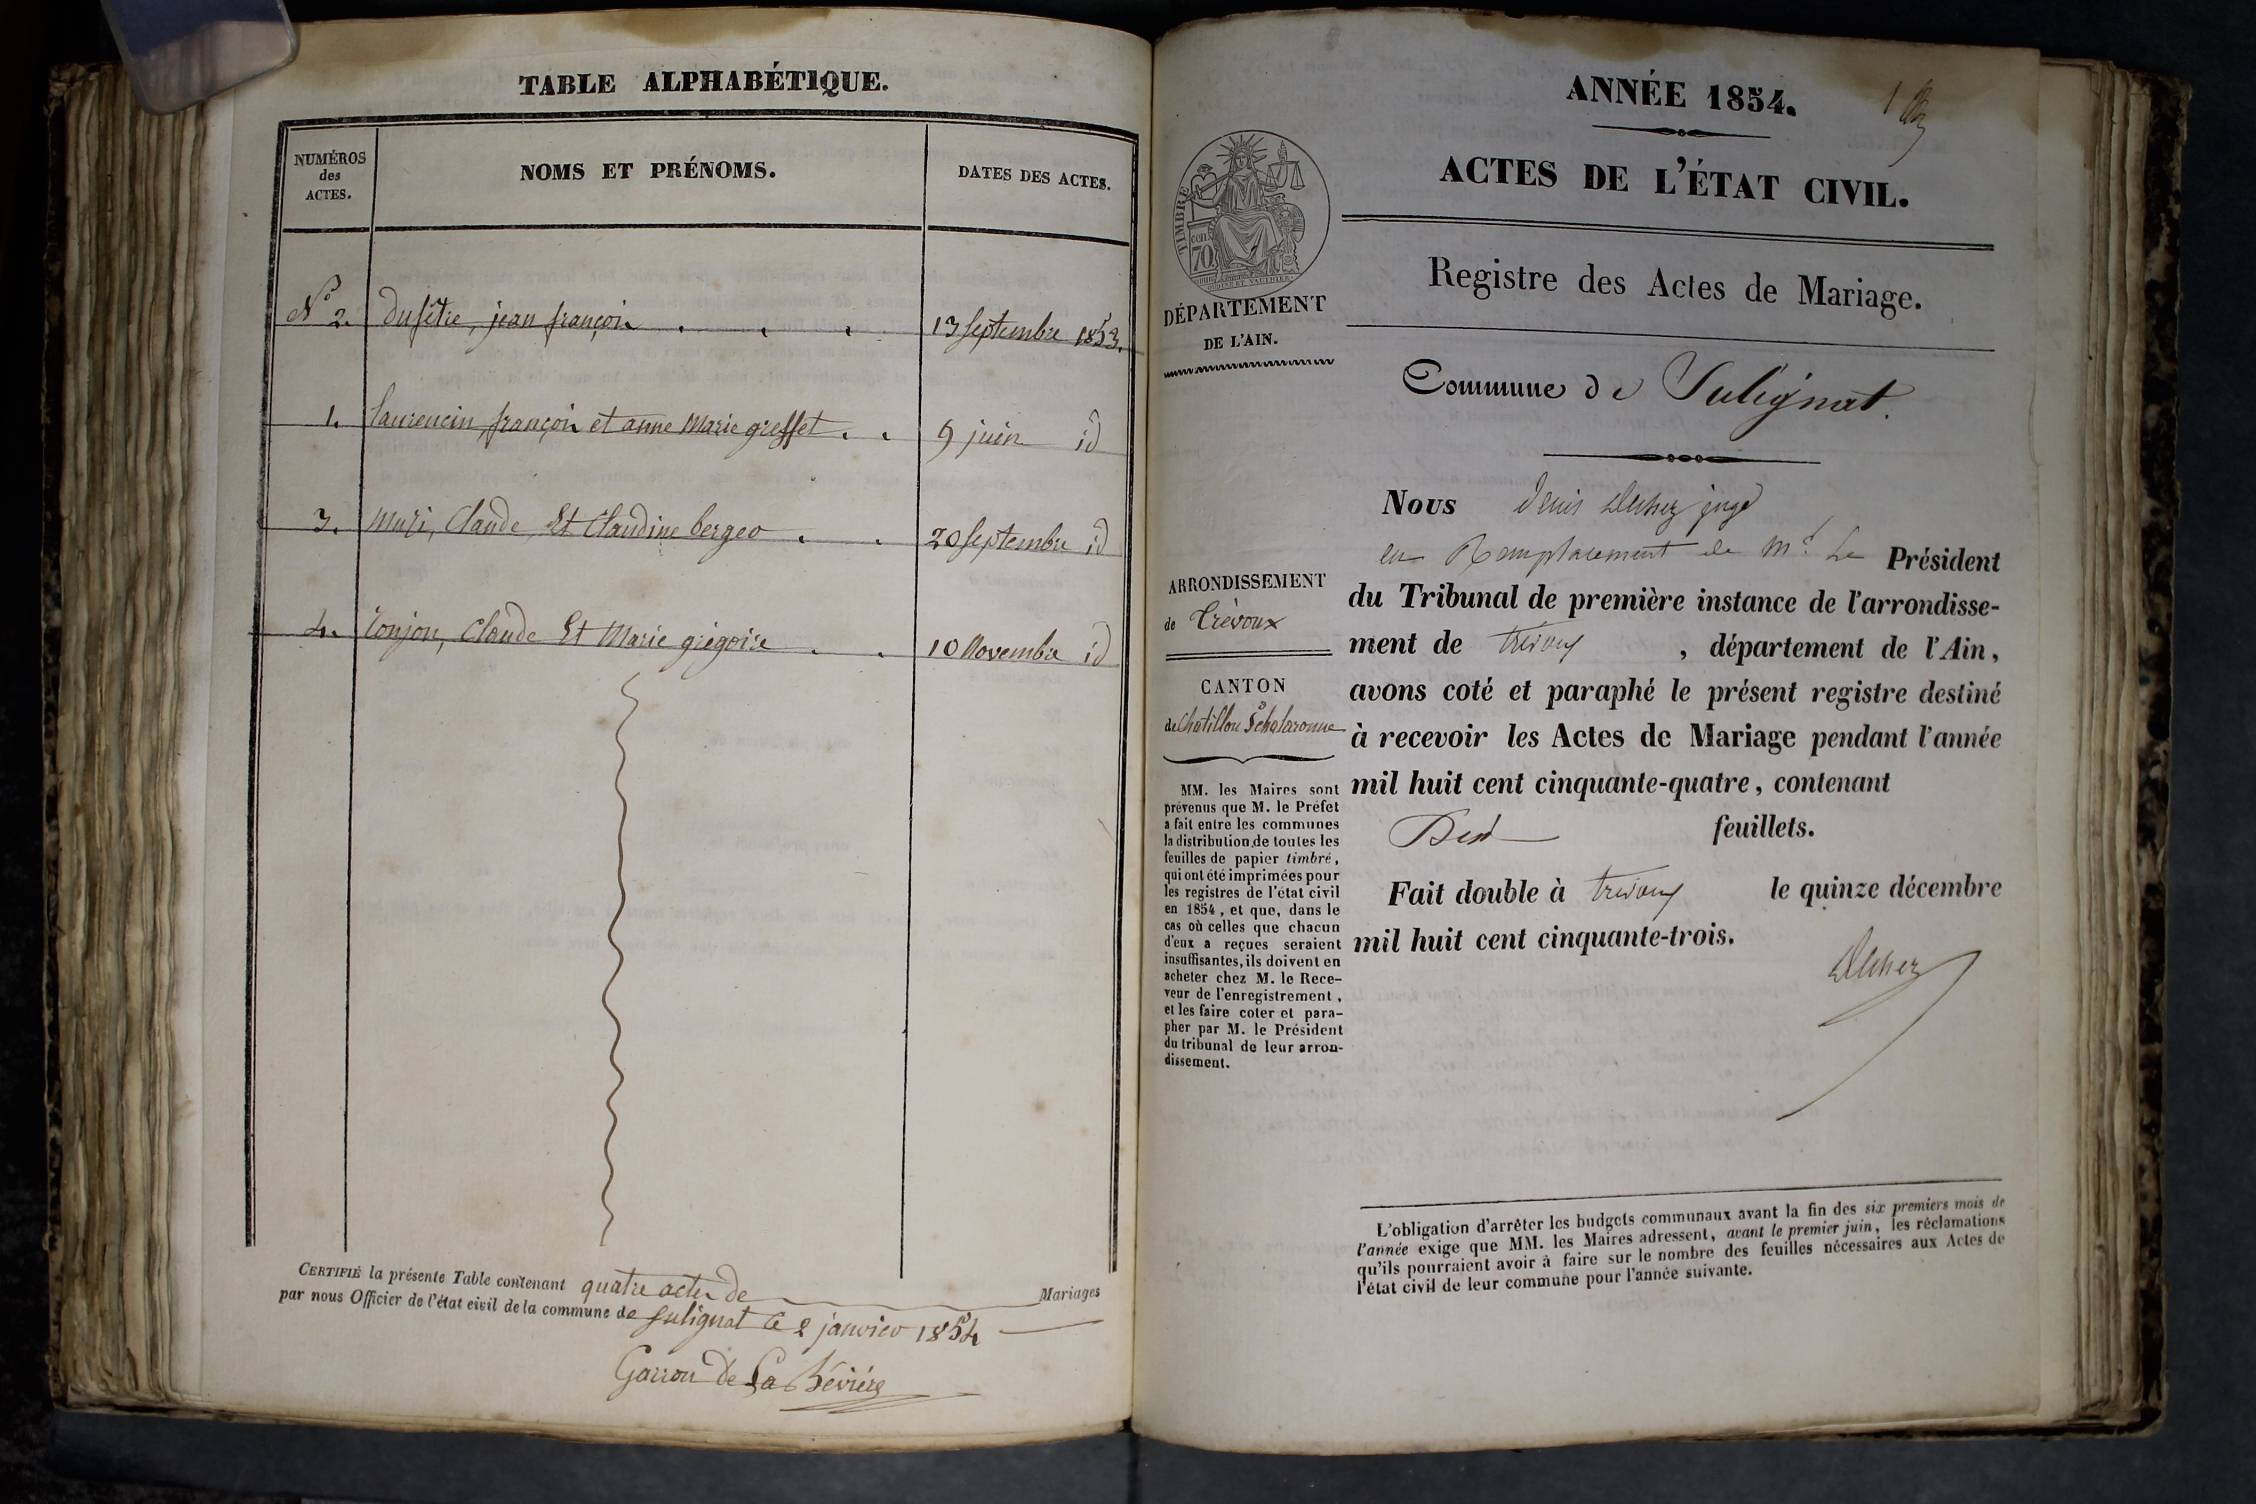 TABLE ALPHABÉTIQUE.
NUMÉROS
des
ACTES.
NOMS ET PRÉNOMS.
DATES DES ACTES.
N° 2. dufêtre, jean françois 13 Septembre 1853.
1. Laurencin françois et anne Marie greffet 9 juin id
3. Muzi, Claude Et Claudine bergeo 20 Septembre id
4. Tonjon, Claude Et Marie grégoire 10 Novembre id
CERTIFIÉ la présente Table contenant quatre actes de Mariages
par nous Officier de l'état civil de la commune de Sulignat le 2 janvier 1854
Garron de La Bévière
ANNÉE 1854.
1
ACTES DE L'ÉTAT CIVIL.
TIMBRE
cen
70
DÉPARTEMENT
DE L'AIN.
Registre des Actes de Mariage.
Commune de Sulignat.
ARRONDISSEMENT
de Trévoux
CANTON
de Chatillon Schalaronne
MM. les Maires sont
prévenus que M. le Préfet
a fait entre les communes
la distribution de toutes les
feuilles de papier timbré,
qui ont été imprimées pour
les registres de l'état civil
en 1854, et que, dans le
cas où celles que chacun
d'eux a reçues seraient
insuffisantes, ils doivent en
acheter chez M. le Rece-
veur de l'enregistrement,
et les faire coter et para-
pher par M. le Président
du tribunal de leur arron-
dissement.
Nous Denis juge
en Remplacement de Mr. Le Président
du Tribunal de première instance de l'arrondisse-
ment de trévoux, département de l'Ain,
avons coté et paraphé le présent registre destiné
à recevoir les Actes de Mariage pendant l'année
mil huit cent cinquante-quatre, contenant
feuillets.
Fait double à trévoux le quinze décembre
mil huit cent cinquante-trois.
L'obligation d'arrêter les budgets communaux avant la fin des six premiers mois de
l'année exige que MM. les Maires adressent, avant le premier juin, les réclamations
qu'ils pourraient avoir à faire sur le nombre des feuilles nécessaires aux Actes de
l'état civil de leur commune pour l'année suivante.